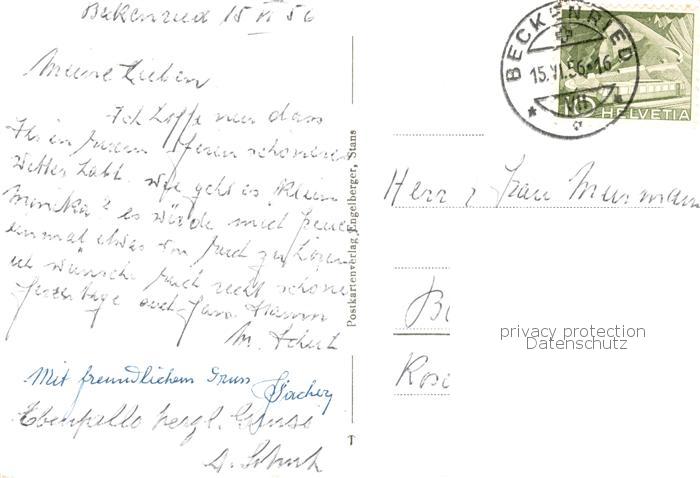 Bekenried 15 VI 56
Meine Lieben
Ich hoffe nur dass
Ihr in Euren Ferien schöneres
Wetter habt. Wie geht es Klein
Monika? es würde mich freuen
einmal etwas von Euch zu hören
ich wünsche Euch recht schöne
Ferientage auch
M. Schut
Mit freundlichem Gruss
Ebenfalls herzl. Grüsse
Postkartenverlag Engelberger, Stans
BECKENRIED
15.VI.56-16
VII
HELVETIA
Herr & Frau
privacy protection
Datenschutz